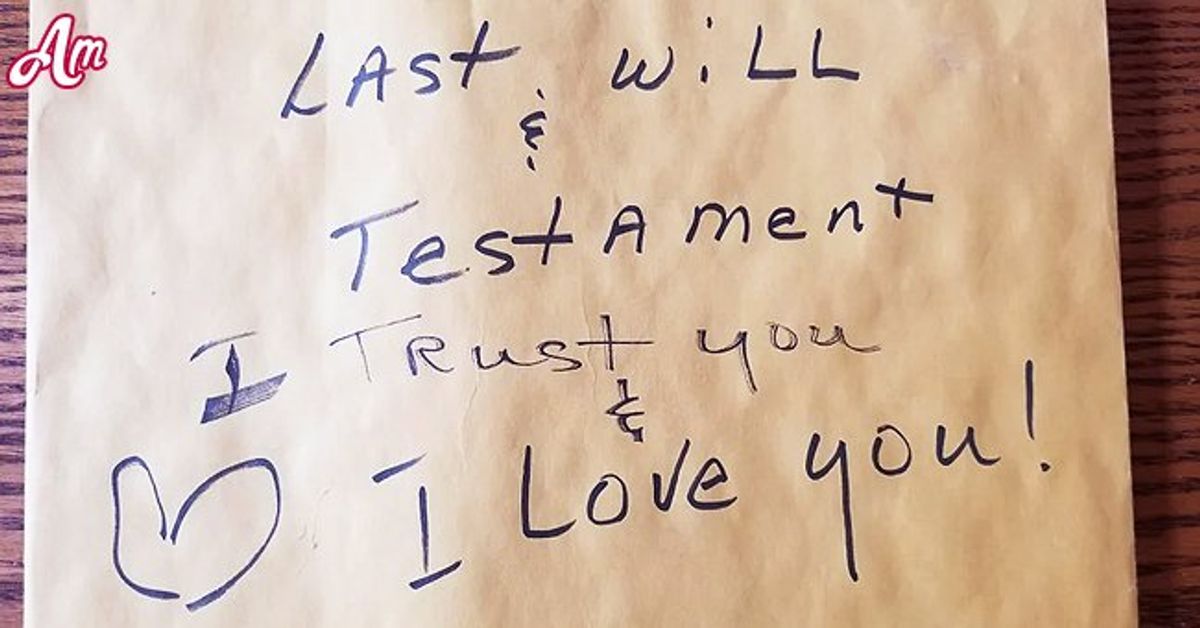 Am
LAst will
&
TestAment
I TRust you
&
I Love you!